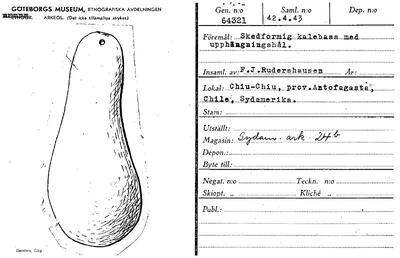 GÖTEBORGS MUSEUM, ETNOGRAFISKA AVDELNINGEN
ARKEOL. (Det icke tillämpliga strykes)
Gen. n:o
64321
Saml. n:o
42.4.43
Dep. n:o
Föremål: Skedformig kalebass med
upphängningshål.
Insaml. av F.J.Rudershausen År:
Lokal: Chiu-Chiu, prov.Antofagasta,
Chile, Sydamerika.
Stam:
Utställt:
Magasin: Sydam. ark. 24b
Depon.:
Byte till:
Negat. n:o Teckn. n:o
Skiopt. „ Kliché „
Publ.: